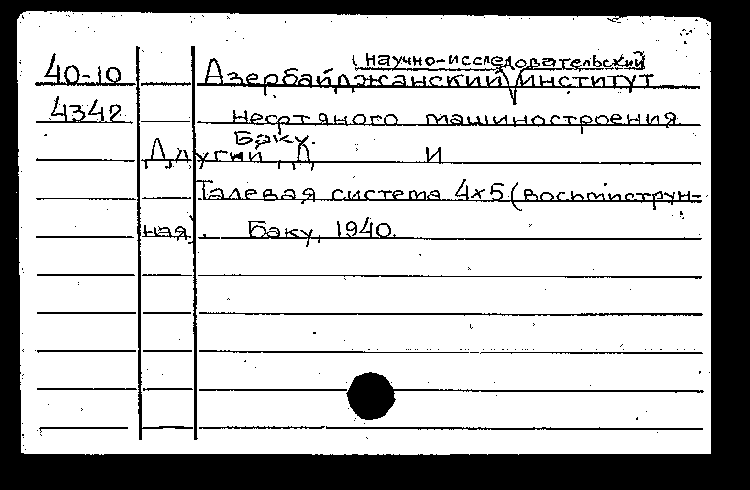 научно-исследовательский
40-10 Азербайджанский институт
4342 нефтяного машиностроения
Баку.
И
Талевая система 4х5 (восьмиструн-
ная). Баку, 1940.